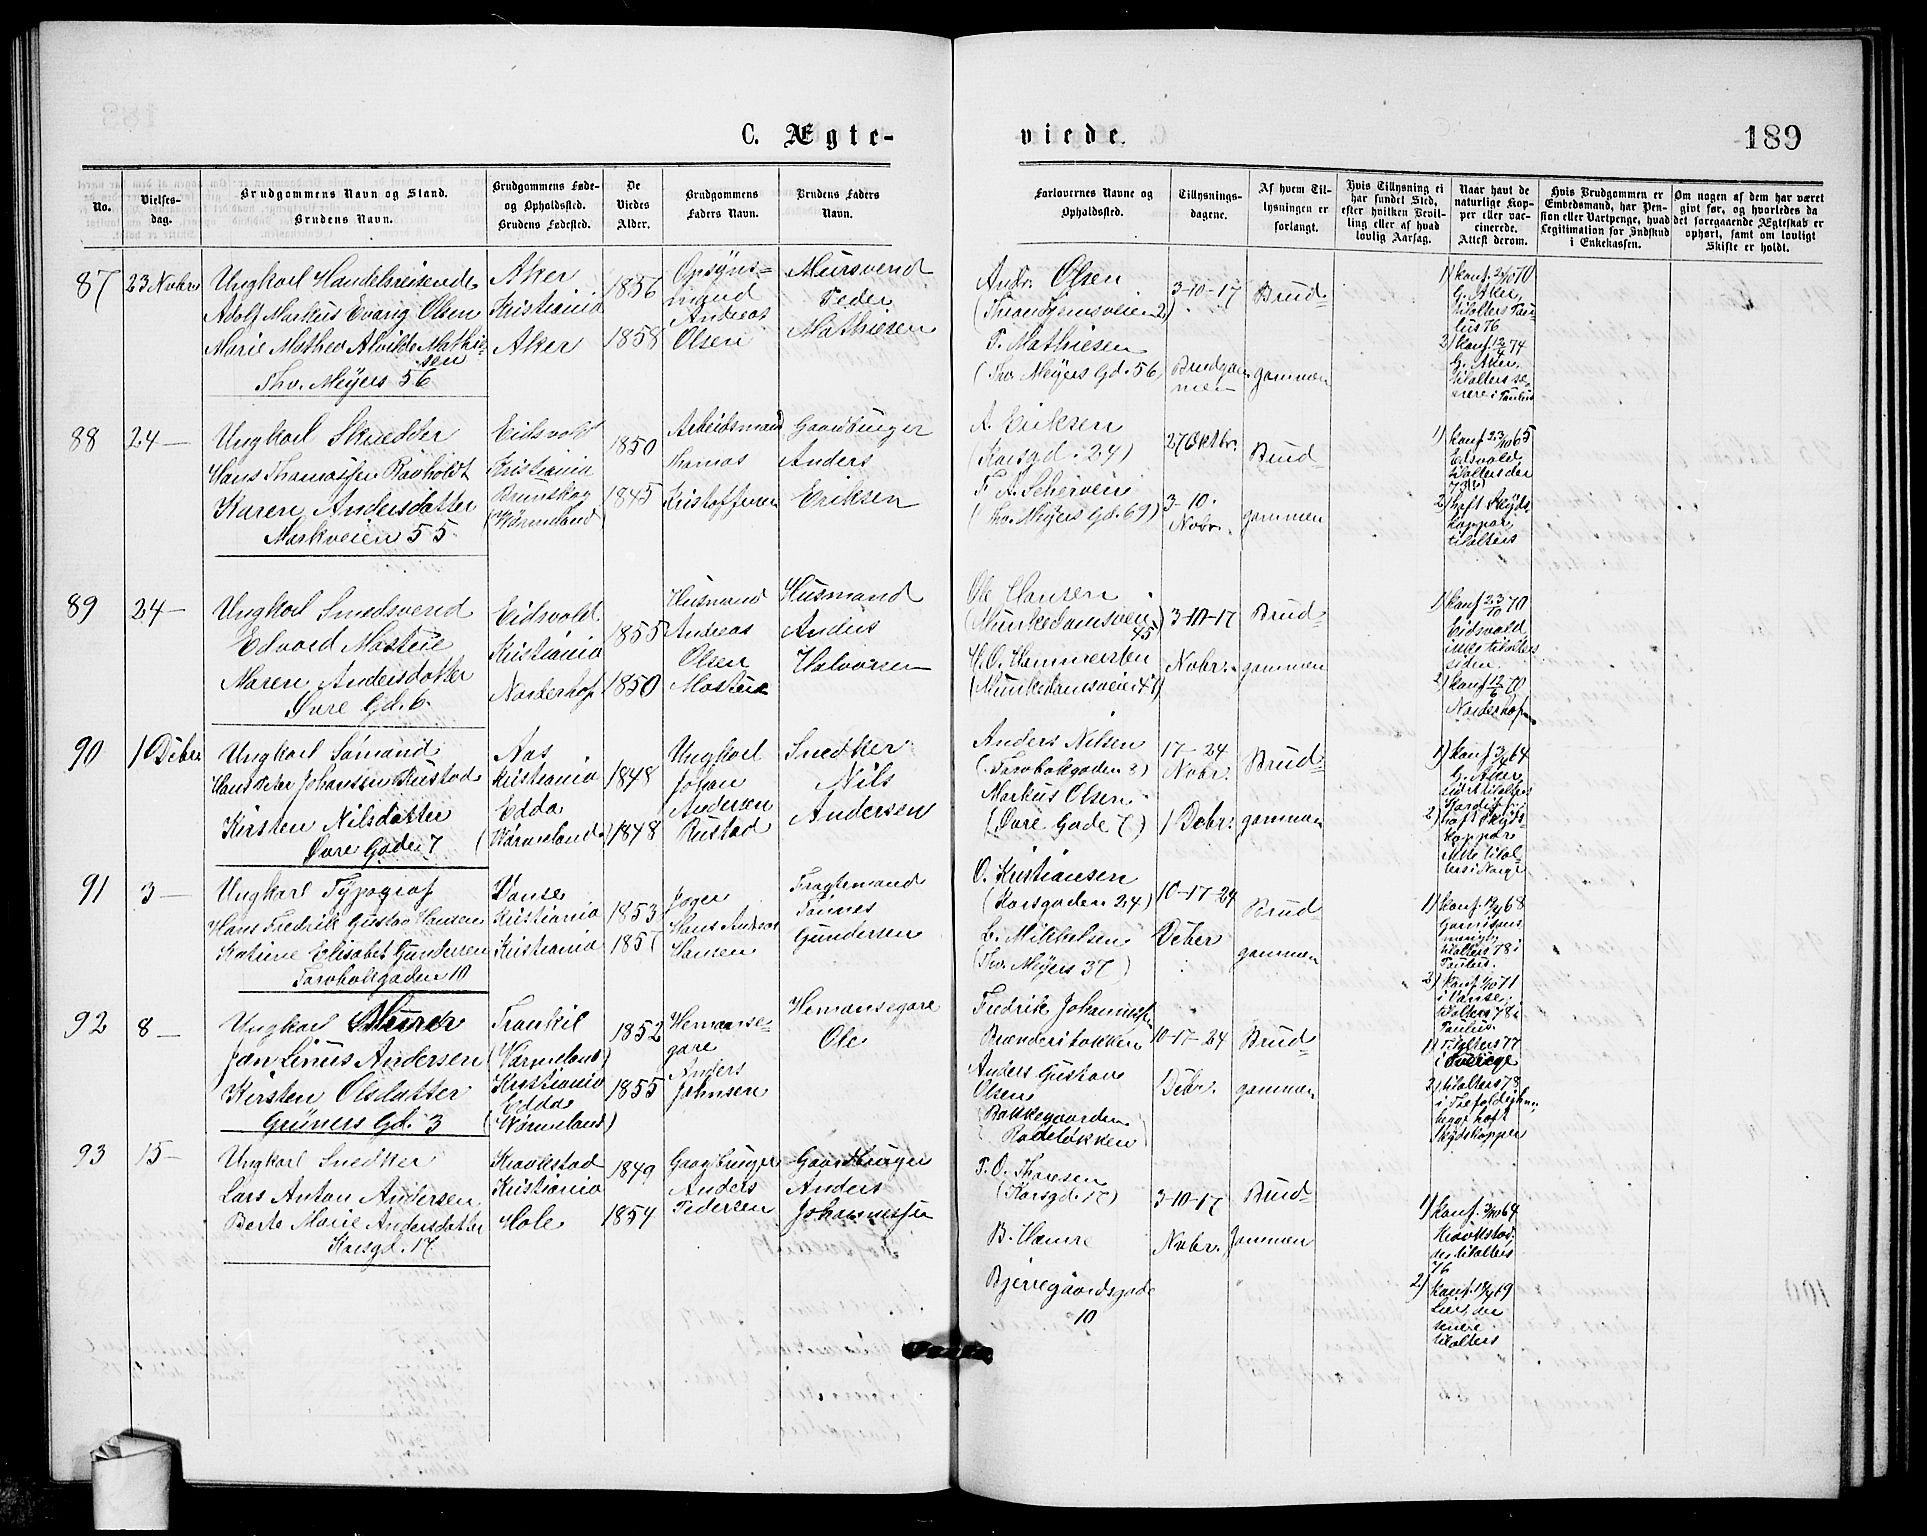 C. Ægte-
viede.
189
No.
Vielses-
dag.
Brudgommens Navn og Stand.
Brudens Navn.
Brudgommens Føde-
og Opholdssted.
Brudens Fødested.
De
Viedes
Alder.
Brudgommens
Faders Navn.
Brudens Faders
Navn.
Forlovernes Navne og
Opholdssted.
Tillysnings-
dagene.
Af hvem Til-
lysningen er
forlangt.
Hvis Tillysning ei
har fundet Sted,
efter hvilken Bevil-
ling eller af hvad
lovlig Aarsag.
Naar havt de
naturlige Kop-
per eller vac-
cinerede.
Attest derom.
Hvis Brudgommen er
Embedsmand, har Pen-
sion eller Vartpenge, hvad
Legitimation for Indskud
i Enkekassen.
Om nogen af dem har været
givt før, og hvorledes da
det foregaaende Ægteskab er
ophørt, samt om lovligt
Skifte er holdt.
87
23 Novbr
Ungkarl Handelsreisende
Adolf Markus Evarig Olsen
Marie Mathea Alvilde Mathie-
sen
Thv. Meyers 56
Aker
Kristiania
Aker
1856
1858
Opsyns-
mand
Andreas
Olsen
Mursvend
Peder
Mathiesen
Andr. Olsen
(Trondhjemsveien 2)
P. Mathiesen
(Thv Meyers Gd. 56)
3-10-17
Brudgom
men
Brud-
gommen
1) konf. 2/10 70
G. Aker,
tilalters Pau-
lus 76
2) konf. 12/4 74
G. Aker,
tilalters se-
nere i Paulus
88
24 —
Ungkarl Skredder
Hans Thomassen Ravholdt
Karen Andersdatter
Markveien 55
Eidsvold
Kristiania
Brunskog
(Wermeland)
1850
1845
Arbeidsmand
Thomas
Kristoffersen
Gaardbruger
Anders
Eriksen
A. Eriksen
(Korsgd. 24)
(Thv. Meyers Gd. 69)
27 Oktbr.
3-10.
Novbr.
Brud-
gommen
1) konf. 23/10 65
Eidsvold
tilalters der
2) haft Skyds-
kopper,
tilalters
89
24 —
Ungkarl Smedsvend
Edvard Mosteie
Maren Andersdatter
Øvre Gd. 6
Eidsvold
Kristiania
Norderhof
1855
1850
Husmand
Andreas
Olsen
Mosteie
Husmand
Anders
Halvorsen
Ole Hansen
(Munkedamsveien
45)
H. O. Hammersten
(Munkedamsveien 41)
3-10-17
Novbr.
Brud-
gommen
1) konf. 23/10 70
Eidsvold
ikke tilalters
siden.
2) konf 12/6 70
Norderhof
90
1 Debr
Ungkarl Sømand
Hans Peter Johansen Rustad
Kirsten Nilsdatter
Øvre Gade 7
Aas
Kristiania
Edda
(Wermeland)
1848
1848
Ungkarl
Johan
Andersen
Rustad
Snedker
Nils
Andersen
Anders Nilsen
(Torvbakgaden 8)
Markus Olsen
(Øvre Gade 7)
17-24
Novbr.
1 Debr.
Brud-
gommen
1) konf. 64
G. Aker
2) haft Skyds-
kopper
ikke tilal-
ters i Norge
91
3 —
Ungkarl Typograf
Hans Fredrik Gustav Hansen
Katrine Elisabet Gundersen
Torvbakgaden 10
Vanse
Kristiania
Kristiania
1853
1857
Hans Andreas
Hansen
Fragtemand
Tønnes
Gundersen
O. Kristiansen
(Korsgaden 24)
C. Mikkelsen
(Thv. Meyers 37)
10-17-24
Debr
Brud
gommen
1) konf. 68
Garnisons
menigh.
tilalters 78 i
Paulus.
2) konf. 71
i Vanse,
tilalters 78 i
Paulus.
92
8 —
Ungkarl Murer
Jan Linus Andersen
Kirsten Olsdatter
Grüners Gd. 3
Trankil
(Wermeland)
Kristiania
Edda
(Wermeland)
1852
1855
Hemanse-
gare
Anders
Johnsen
Hemansegare
Ole
Fredrik Johannessen
Brænderiløkken
Anders Gustav
Olsen
(Bakkegaarden
Rodeløkken)
10-17-24
Debr.
Brud-
gommen
1) tilalters 77
i Sverige
2) tilalters 78
i Trefoldighe.
begge haft
Skydskopper
93
15 —
Ungkarl Snedker
Lars Anton Andersen
Berte Marie Andersdatter
Korsgd. 17
Kraakstad
Kristiania
Hole
1849
1854
Gaardbruger
Anders
Pedersen
Gaardbruger
Anders
Johannessen
P. O. Thoresen
(Korsgd. 17)
B. Hamre
Bjerregaardsgade
10
3-10-17
Novbr.
Brud-
gommen
1) konf. 64
Kraakstad
tilalters
76
2) konf. 69
senere
tilalters